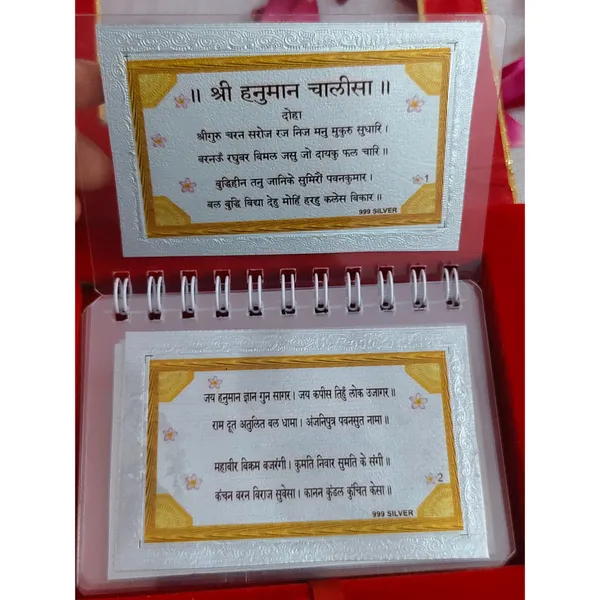 ॥ श्री हनुमान चालीसा ॥
दोहा
श्रीगुरु चरन सरोज रज निज मनु मुकुरु सुधारि ।
बरनऊँ रघुबर बिमल जसु जो दायकु फल चारि ॥
बुद्धिहीन तनु जानिके सुमिरौं पवनकुमार ।
बल बुद्धि बिद्या देहु मोहिं हरहु कलेस बिकार ॥
1
999 SILVER
जय हनुमान ज्ञान गुन सागर । जय कपीस तिहुँ लोक उजागर ॥
राम दूत अतुलित बल धामा । अंजनिपुत्र पवनसुत नामा ॥
महाबीर बिकम बजरंगी । कुमति निवार सुमति के संगी ॥
कंचन बरन बिराज सुवेसा । कानन कुंडल कुंचित केसा ॥
2
999 SILVER